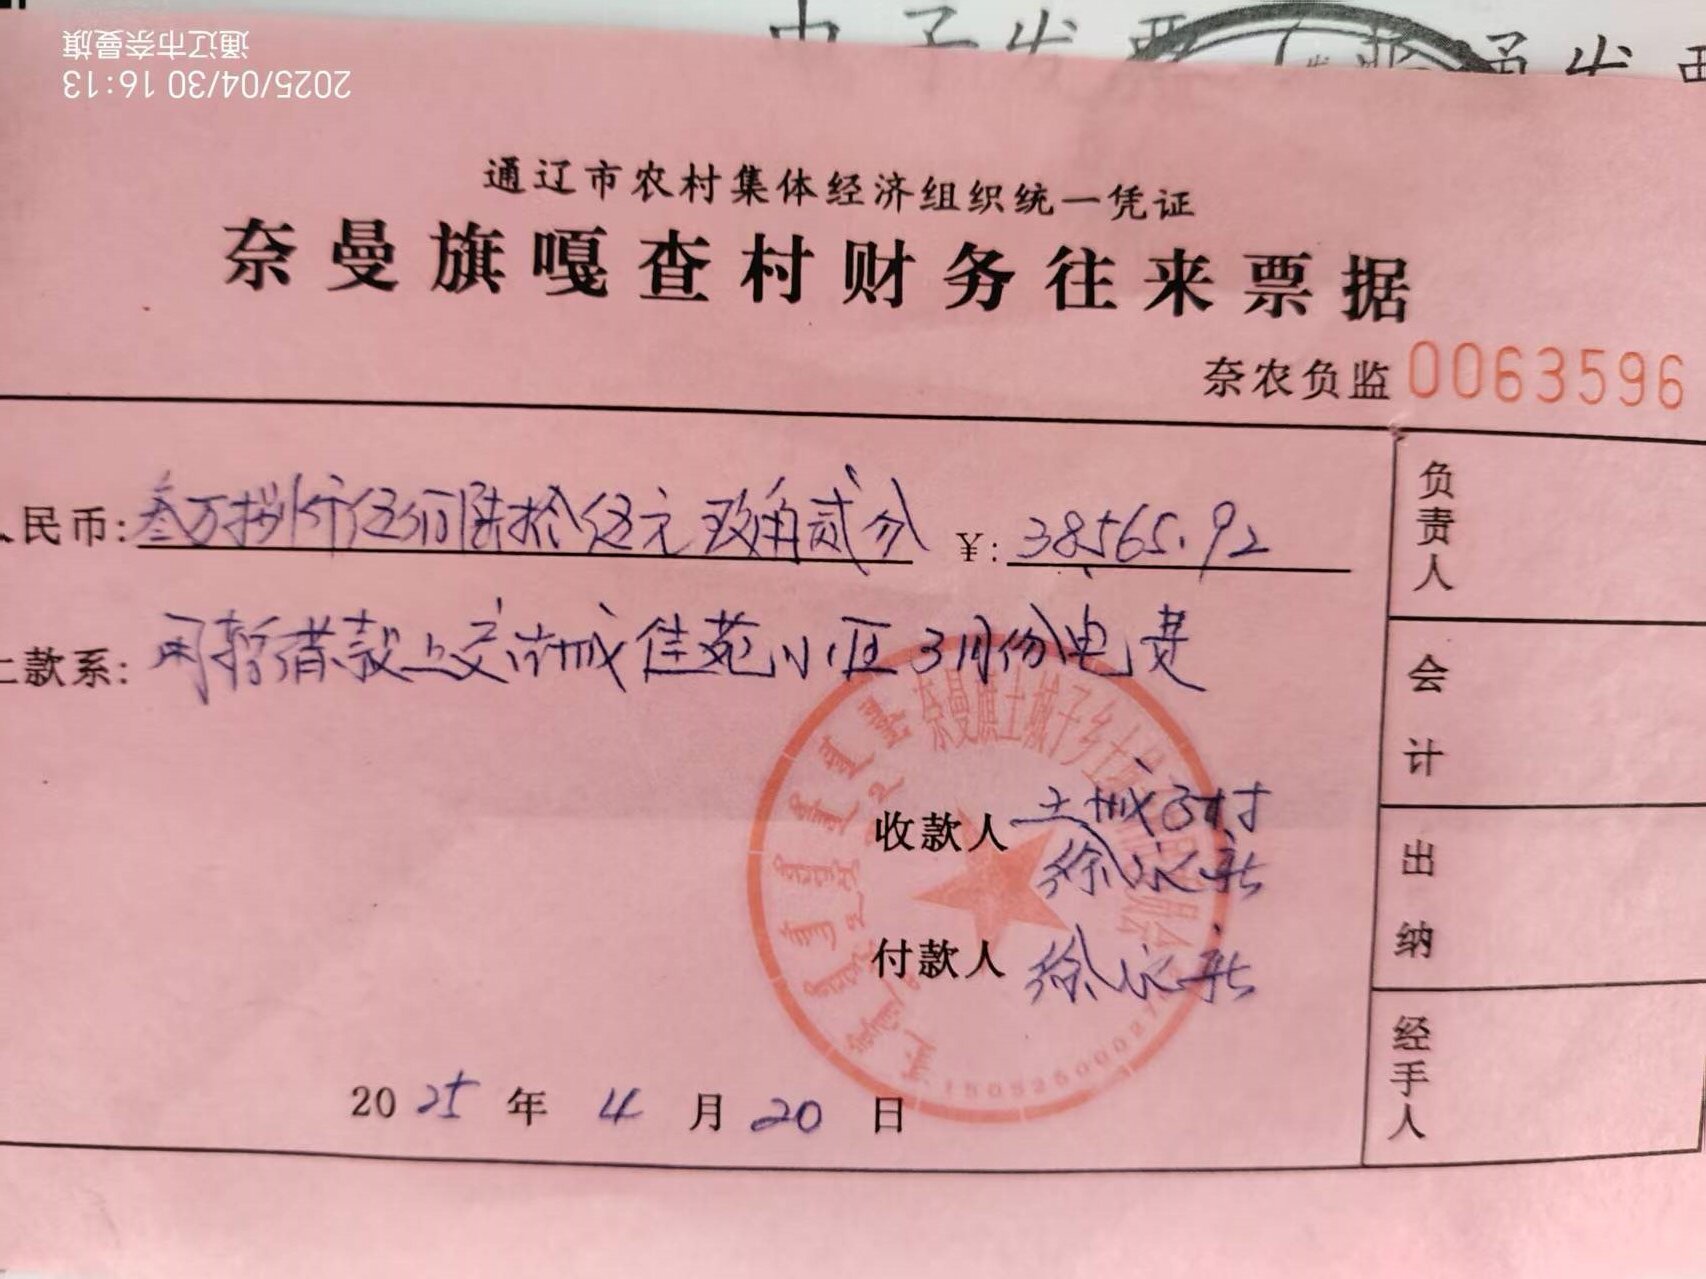 电子发票(普通发票
通辽市奈曼旗
2025/04/30 16:13
通辽市农村集体经济组织统一凭证
奈曼旗嘎查村财务往来票据
奈农负监 0063596
人民币: 叁万捌仟伍佰陆拾伍元玖角贰分 ¥: 38565.92
上款系: 用暂借款上交诗城佳苑小区3月份电费
奈曼旗土城子乡土城子村
收款人 土城子村
徐永新
付款人 徐永新
2025年4月20日
负责人
会计
出纳
经手人